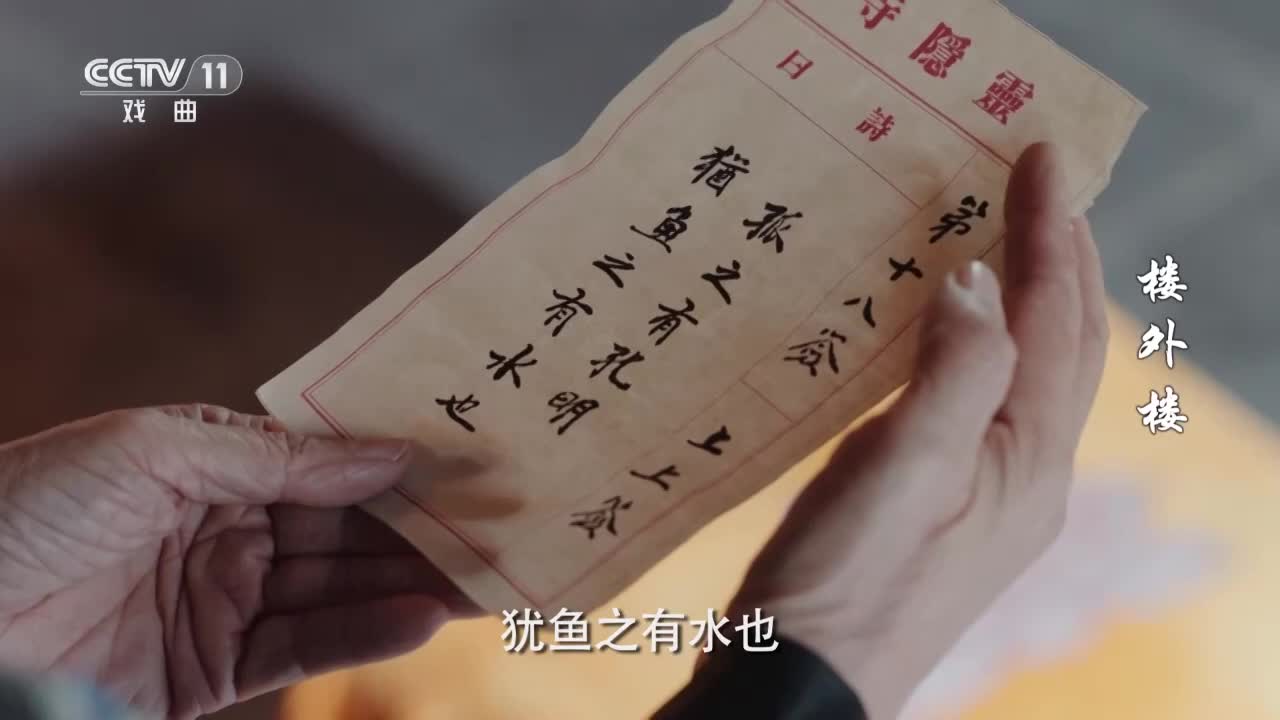 CCTV 11
戏曲
靈隱寺
詩曰
第十八签
上上签
孤之有孔明
猶魚之有水也
楼外楼
犹鱼之有水也